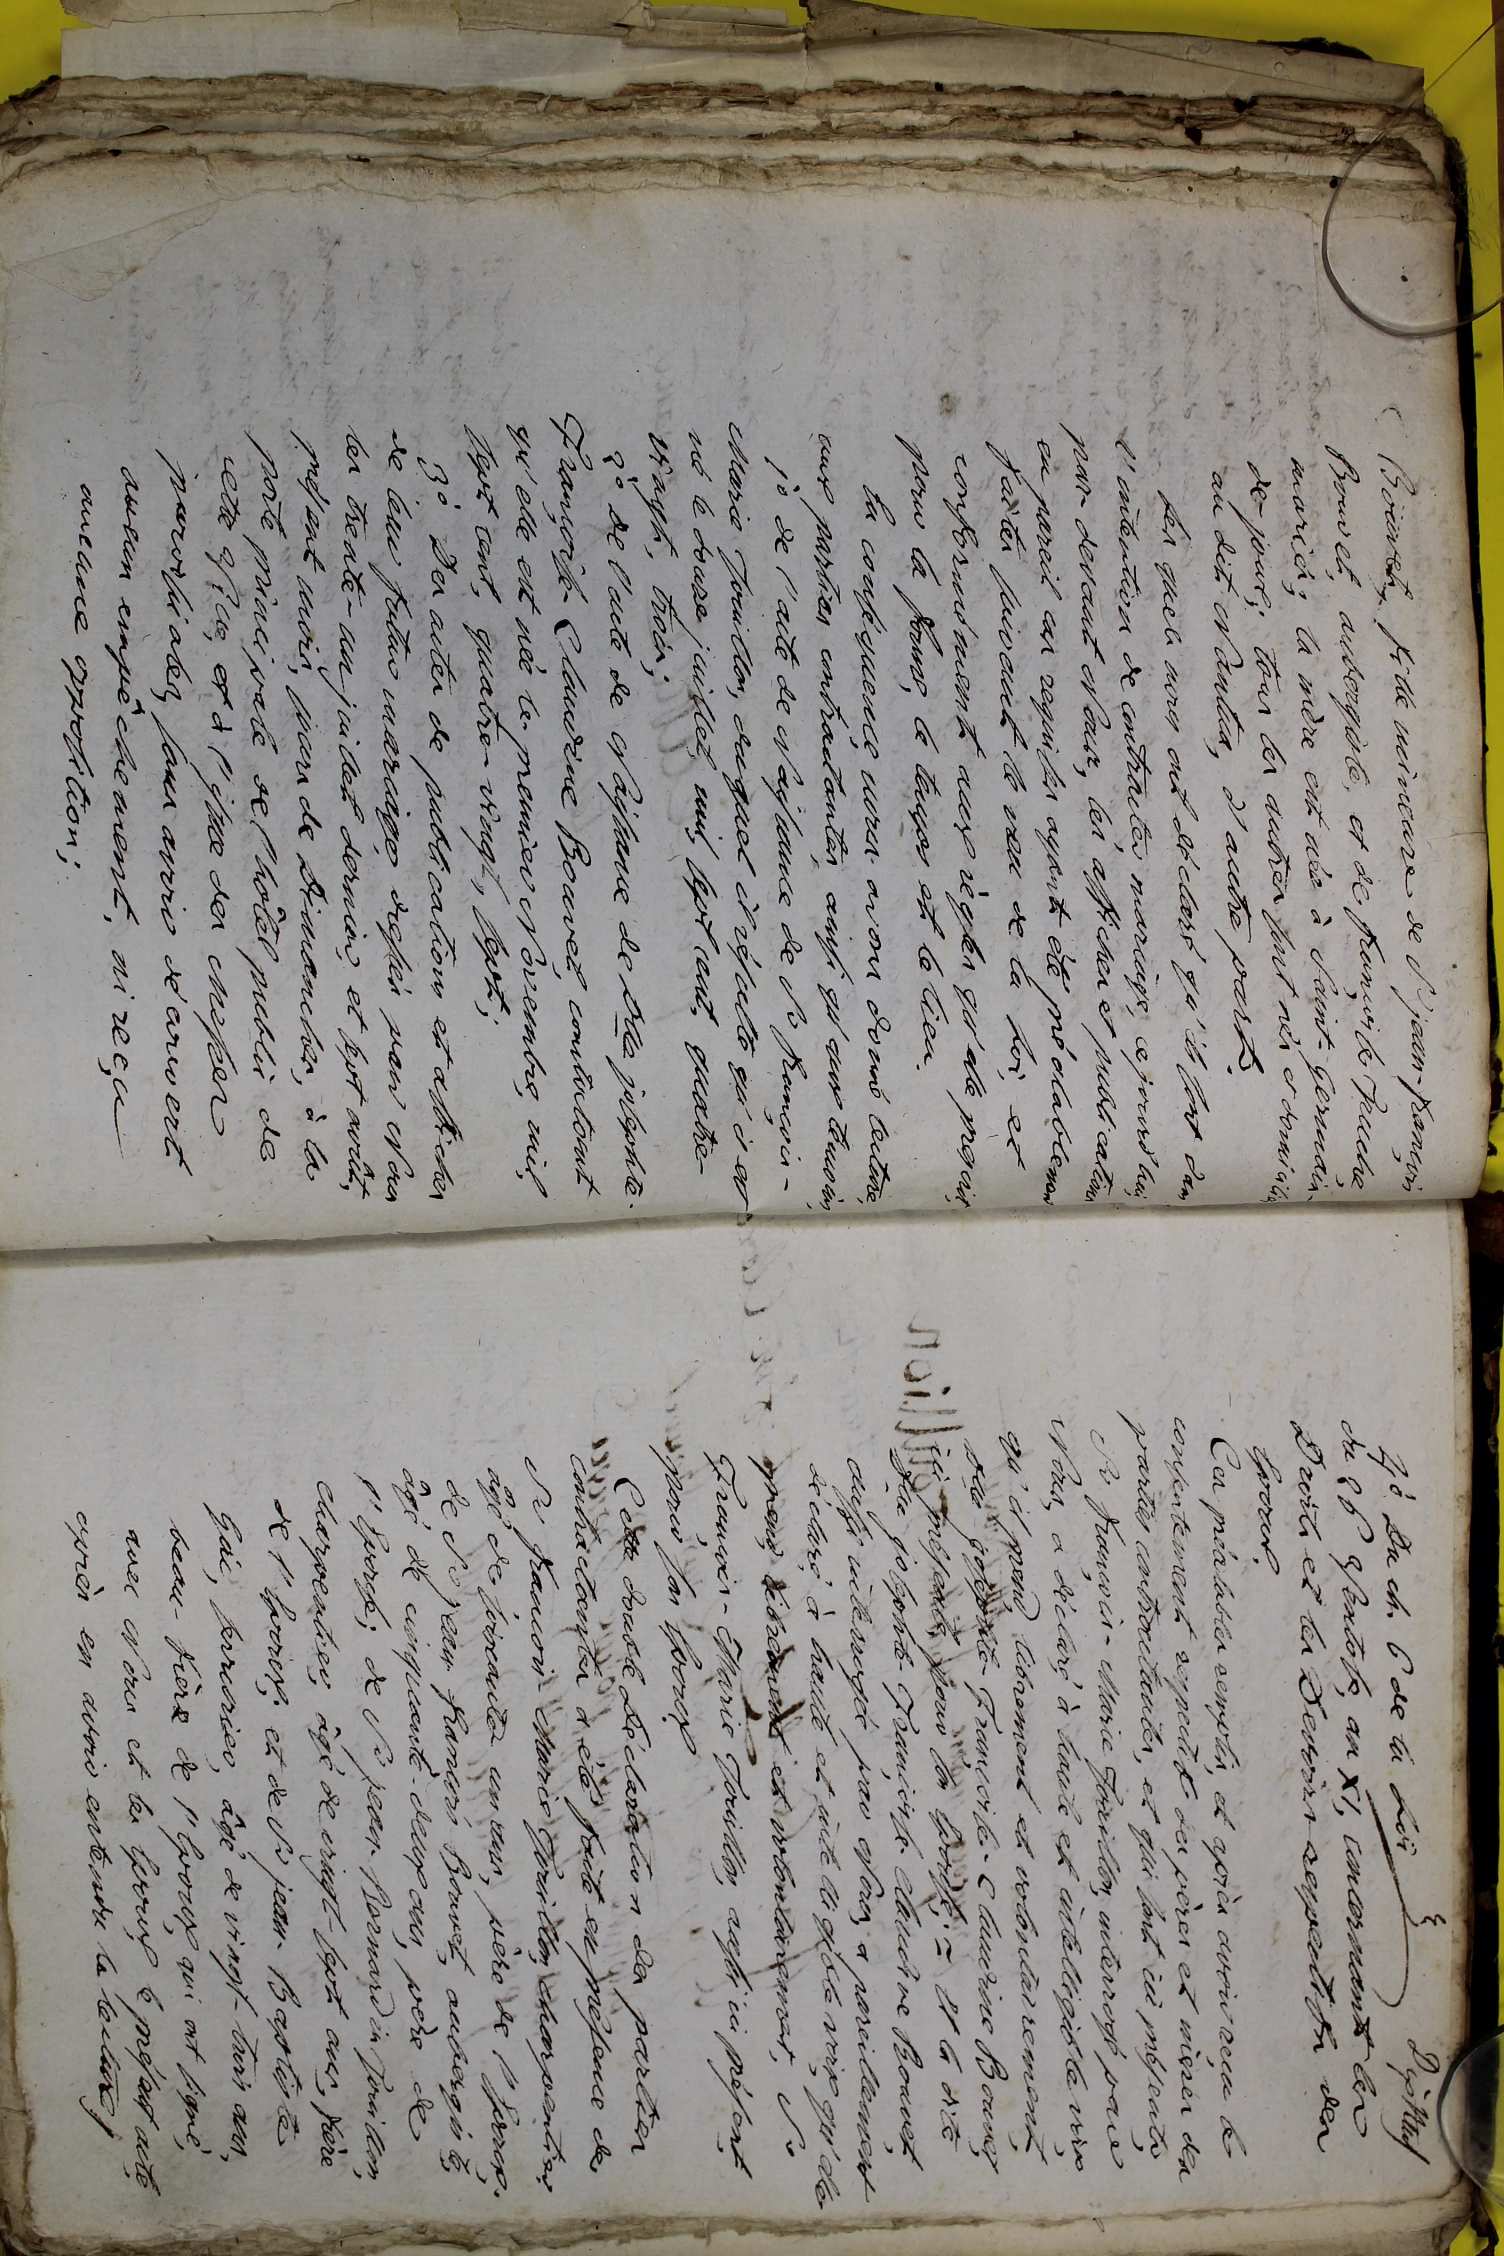 Boiontet, fide mineure de Sr jean-françois
Bouvet, aubergiste, et de françoise Fauche
mariés; la mère est née à Saint-Germain
de-joux; tous les autres sont nés et domiciliés
au dit Nantua, d'autre part.
les quels nous ont déclaré qu'ils sont dans
l'intention de contracter mariage, cejourd'hui
par devant Nous, les affiches et publications
en pareil cas requises ayant été préalablement
faites suivant le vœu de la loi, et
conformément aux règles qu'elle prescrit,
pour la forme, le temps et le lieu.
En conséquence nous avons donné lecture
aux parties contractantes, ainsi qu'aux témoins,
1º de l'acte de Naissance de Sr françois-
Marie Tornillon, duquel il résulte qu'il est
né le douze juillet, mil sept cent, quatre-
vingt, trois;
2º de l'acte de Naissance de Dlle josephte-
Françoise-Claudine Bouvet, constatant
qu'elle est née le premier Novembre, mil
sept cent, quatre-vingt, sept;
3º Des actes de publication et affiches
de leur futur mariage, dressés par Nous
les trente-un juillet dernier, et sept août,
présent mois, jours de Dimanches, à la
porte principale de l'hôtel public de
cette ville, et à l'issue des messes
paroissiales, sans avoir découvert
aucun empêchement, ni reçu
aucune opposition;
4º Du ch. 6 de la Loi
du 26 Ventôse, an XI, concernant les
Droits et les Devoirs respectifs des
Epoux,
Ces préalables remplis, et après avoir reçu le
consentement respectif des pères et mères des
parties contractantes, et qui sont ici présents,
Sr François-Marie Tornillon, interrogé par
Nous, a déclaré à haute et intelligible voix
qu'il prend librement et volontairement,
Dlle josephte-Françoise-Claudine Bouvet,
ici présente, pour son Epouse; = et la dite
Dlle josephte-Françoise-Claudine Bouvet,
aussi interrogée par Nous, a pareillement
déclaré à haute et intelligible voix, qu'elle
prend librement et volontairement, Sr
François-Marie Tornillon, aussi ici présent,
pour son Epoux,
Cette double Déclaration des parties
contractantes a été faite en présence de
Sr françois Marie Tornillon, charpentier,
âgé de soixante un ans, père de l'Epoux;
de Sr jean françois Bouvet, aubergiste,
âgé de cinquante-deux ans, père de
l'Epouse; de Sr jean-Bernardin Tornillon,
charpentier, âgé de vingt-sept ans, frère
de l'Epoux, et de Sr jean-Baptiste
Gai, perruquier, âgé de vingt-trois ans,
beau-frère de l'Epoux, qui ont signé,
avec Nous et les Epoux le présent acte,
après en avoir entendu la lecture,